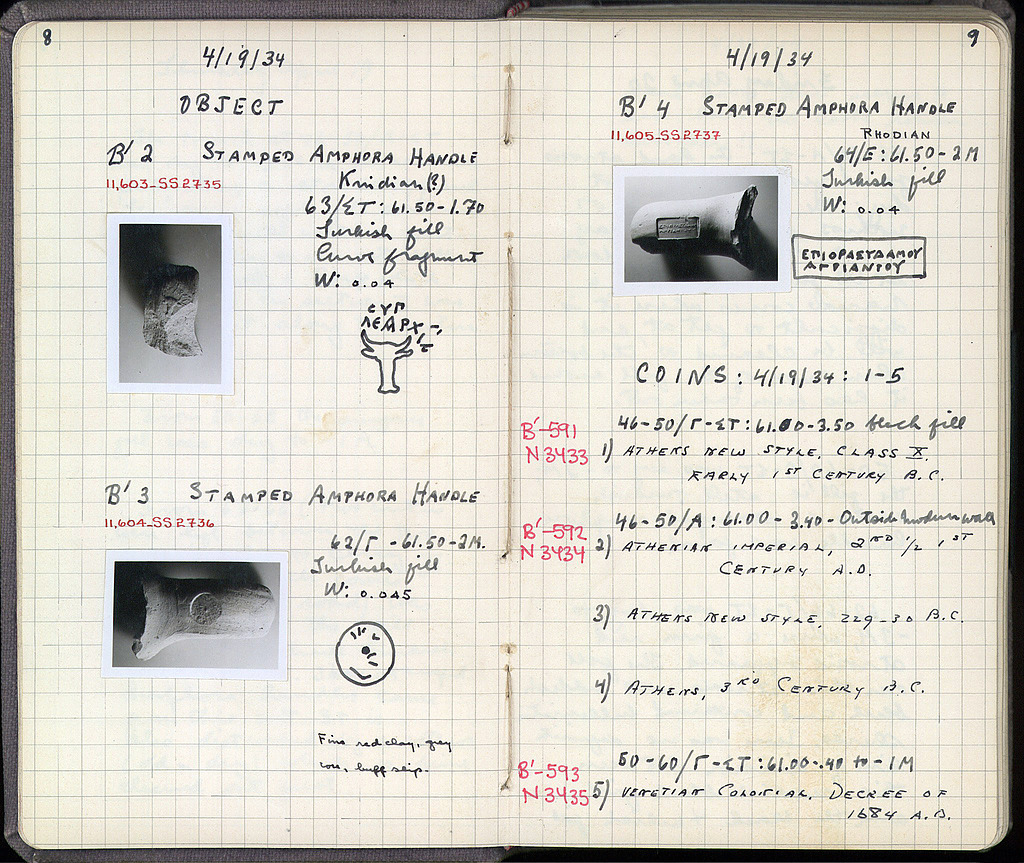 8
4/19/34
OBJECT
B' 2 STAMPED AMPHORA HANDLE
11,603-SS 2735
Knidian(?)
63/ΣΤ: 61.50-1.70
Turkish fill
Curve fragment
W: 0.04
ΛΕΑΡΧ
B' 3 STAMPED AMPHORA HANDLE
11,604-SS 2736
62/Γ -61.50-2M.
Turkish fill
W: 0.045
Fine red clay, grey
core, buff slip.
9
4/19/34
B' 4 STAMPED AMPHORA HANDLE
11,605-SS 2737
RHODIAN
64/E: 61.50-2M
Turkish fill
W: 0.04
COINS: 4/19/34: 1-5
B'-591
46-50/Γ-ΣΤ: 61.00-3.50 black fill
N 3433
1) ATHENS NEW STYLE, CLASS X.
EARLY 1ST CENTURY B.C.
B'-592
46-50/A: 61.00-3.40-Outside modern wall
N 3434
2) ATHENIAN IMPERIAL, 2ND 1/2 1ST
CENTURY A.D.
3) ATHENS NEW STYLE, 229-30 B.C.
4) ATHENS, 3RD CENTURY B.C.
B'-593
50-60/Γ-ΣΤ: 61.00-.40 to -1M
N 3435
5) VENETIAN COLONIAL. DECREE OF
1684 A.D.